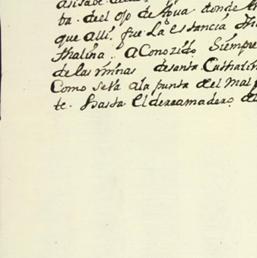 ba. del ojo de Agua donde
que alli fue La estancia
thalina. a Conozido Siempre
de las minas de santa Cathalin
Como se va a la punta del Mal p
te. hasta El derramadero de